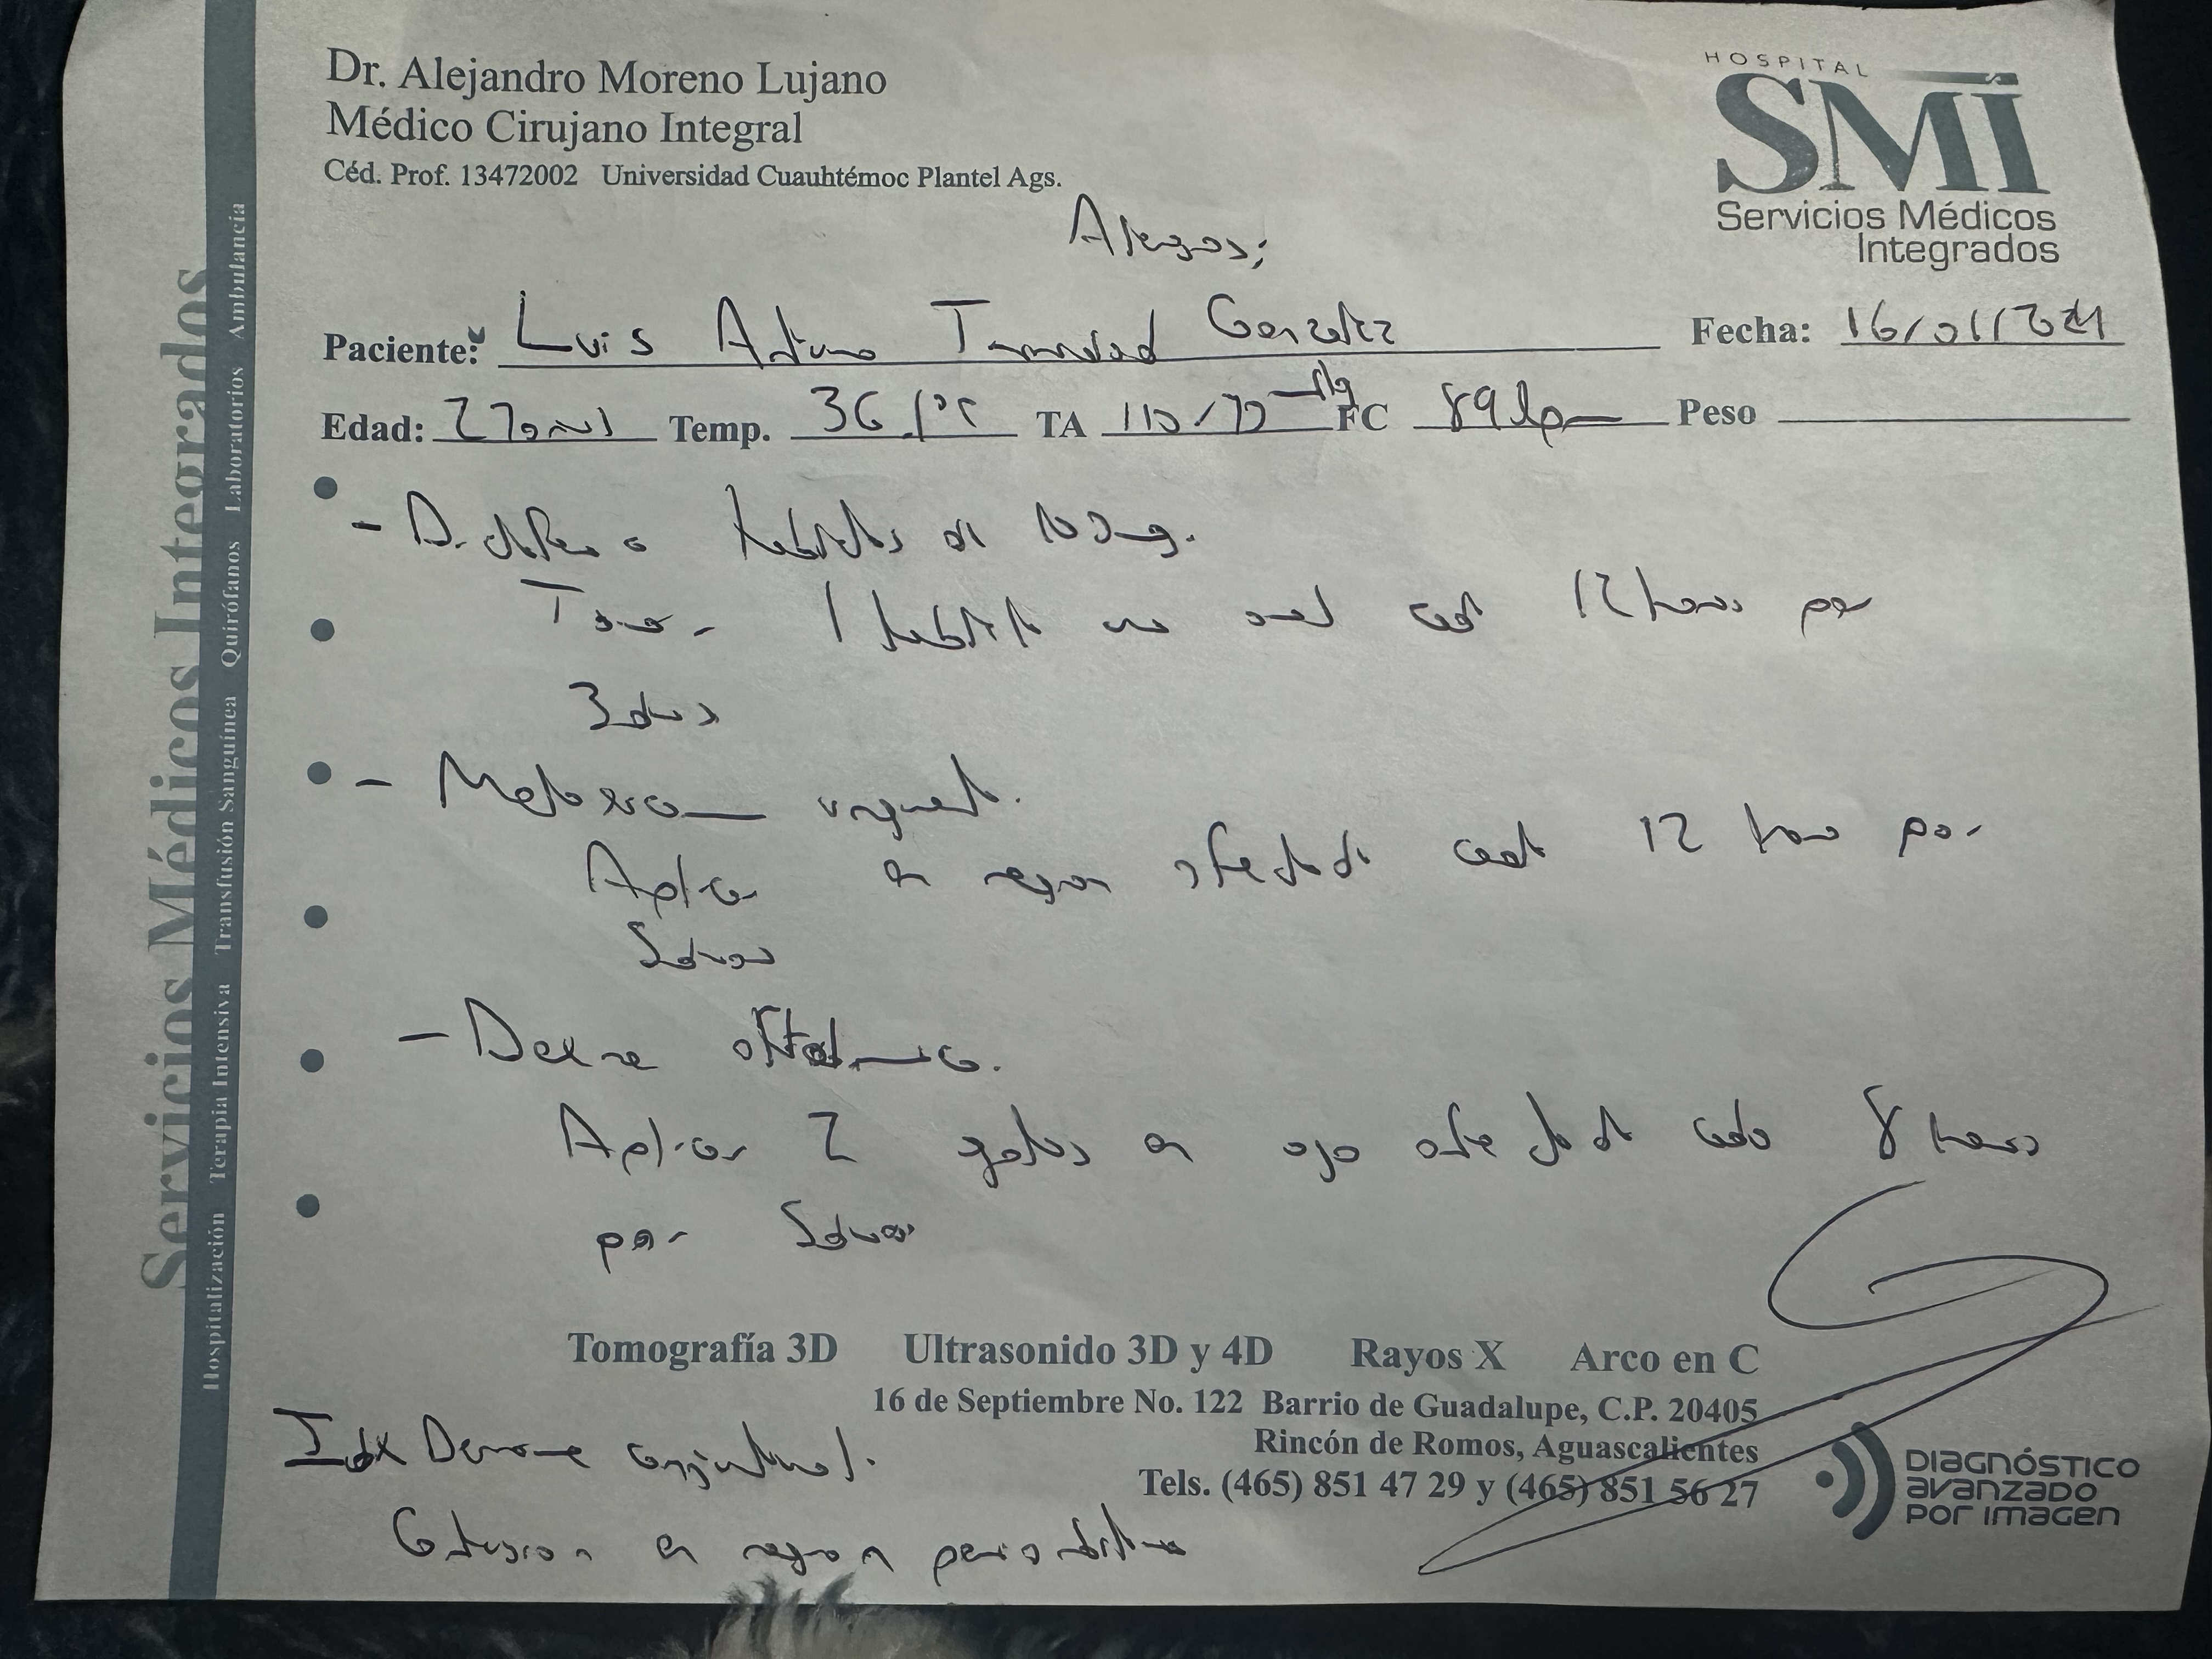 Dr. Alejandro Moreno Lujano
Médico Cirujano Integral
Céd. Prof. 13472002 Universidad Cuauhtémoc Plantel Ags.
HOSPITAL
SMI
Servicios Médicos
Integrados
Paciente: Luis Arturo Gonzalez Fecha: 16/01/
Edad: 27 años Temp. 36.1°C TA 110/70 mmHg FC 89 lpm Peso
- Diclofenaco tabletas de 100 mg.
Tomar 1 tableta via oral cada 12 horas por
3 dias
- Meloxicam ungüento.
Aplicar en region afectada cada 12 horas por
5 dias
- oftalmico.
Aplicar 2 gotas en ojo afectado cada 8 horas
por 5 dias
Servicios Médicos Integrados
Hospitalización Terapia Intensiva Transfusión Sanguínea Quirófanos Laboratorios Ambulancia
Tomografía 3D Ultrasonido 3D y 4D Rayos X Arco en C
16 de Septiembre No. 122 Barrio de Guadalupe, C.P. 20405
Rincón de Romos, Aguascalientes
Tels. (465) 851 47 29 y (465) 851 56 27
DIAGNÓSTICO
AVANZADO
POR IMAGEN
Idx Derrame conjuntival.
Contusion en region periorbitaria